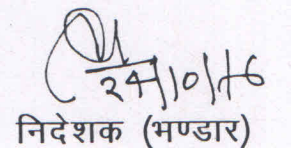 24/10/16
निदेशक (भण्डार)